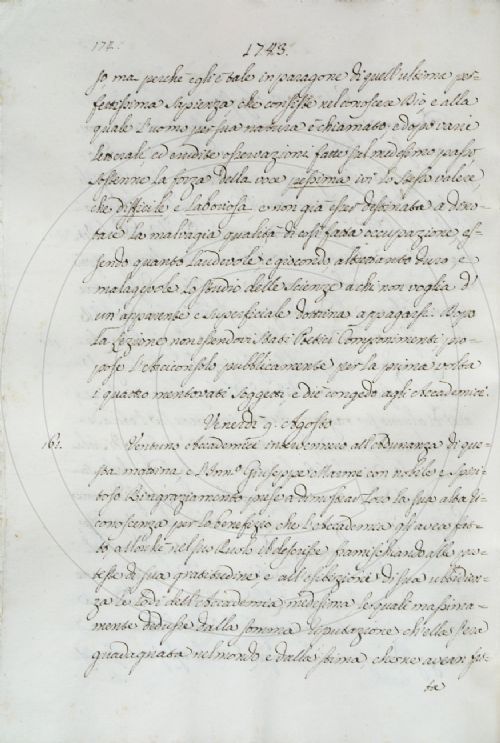 174.
1743.
so ma perchè egli è tale in paragone di quell'ultima per-
fettissima Sapienza che consiste nel conoscere Dio, e alla
quale l'uomo per sua natura è chiamato; e dopo varie
letterali, ed erudite osservazioni fatte sul medesimo passo
sostenne la forza della voce pessima ivi lo stesso valere,
che difficile e laboriosa e non già esser destinata a deno-
tare la malvagia qualità di così fatta occupazione es-
sendo quanto laudevole e giocondo altrettanto duro e
malagevole lo studio delle scienze a chi non voglia d'
un'apparente e superficiale dottrina appagarsi. Dopo
la Lezione non essendovi stati Poetici Componimenti pro-
pose l'Arciconsolo pubblicamente per la prima volta
i quattro mentovati Soggetti e diè congedo agli Accademici.
Venerdì 9. Agosto
16.
Ventuno Accademici intervennero all'Adunanza di que-
sta mattina e l'Ann.º Giuseppe con nobile e spiri-
toso Ringraziamento prese a dimostrar loro la sua alta ri-
conoscenza per la benefizio che l'Accademia gli avea fat-
to allorchè nel suo Ruolo il descrisse framischiando alle pro-
teste di sua gratitudine e all'esibizione di sua ubbidien-
za le lodi dell'Accademia medesima le quali massima-
mente dedusse dalla somma riputazione ch'ella s'era
guadagnata nel mondo, e dalla stima che ne avean fat-
ta